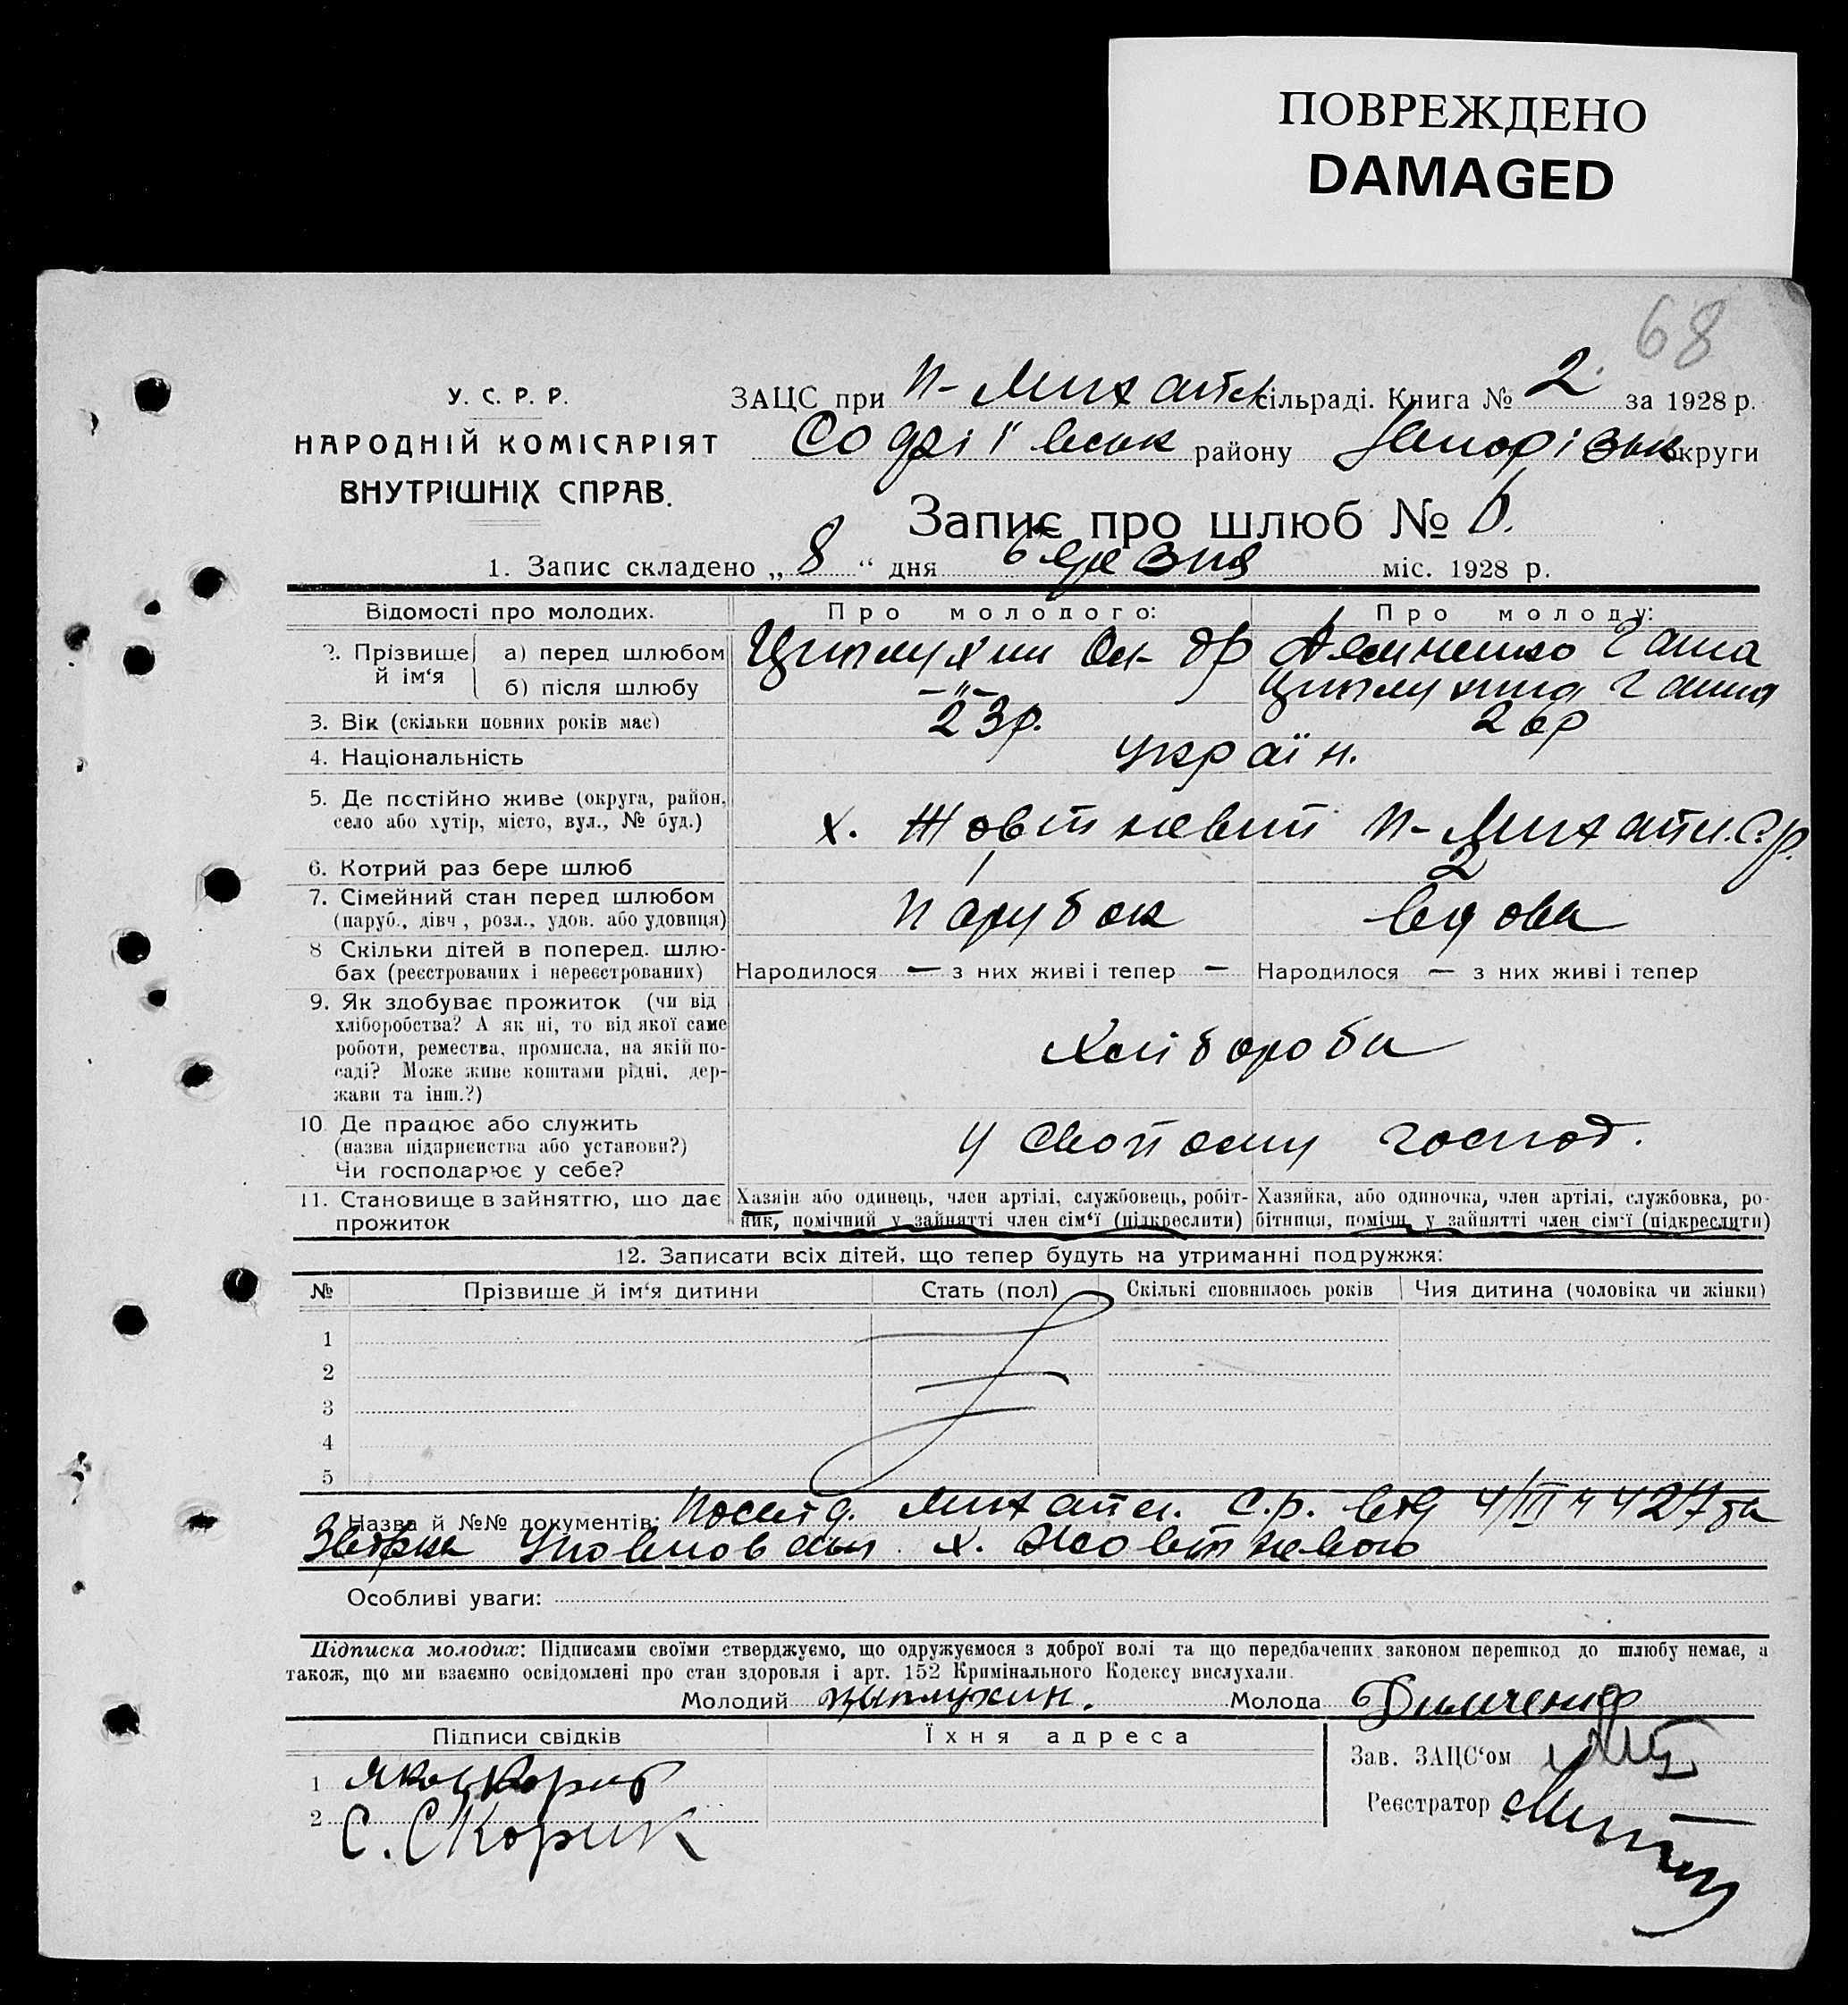 ПОВРЕЖДЕНО
DAMAGED
68
У. С. Р. Р.
НАРОДНІЙ КОМІСАРІЯТ
ВНУТРІШНІХ СПРАВ.
ЗАЦС при П- Михайл сільраді. Книга № 2. за 1928 р.
Софіївськ району Запорізьк округи
Запис про шлюб № 6.
1. Запис складено „ 8 “ дня березня міс. 1928 р.
Відомості про молодих. Про молодого: Про молоду:
2. Прізвище й ім‘я а) перед шлюбом Ципмухин Ол-др Демченко Ганна
б) після шлюбу –"– Ципмухина Ганна
3. Вік (скільки повних років має) 23р. 26р
4. Національність україн.
5. Де постійно живе (округа, район,
село або хутір, місто, вул., № буд.) х. Жовтневий П- Михайл. С.р.
6. Котрий раз бере шлюб 1 2
7. Сімейний стан перед шлюбом
(паруб., дівч., розл., удов. або удовиця) парубок вдова
8 Скільки дітей в поперед. шлю-
бах (реєстрованих і нереєстрованих) Народилося — з них живі і тепер — Народилося — з них живі і тепер
9. Як здобуває прожиток (чи від
хліборобства? А як ні, то від якої саме
роботи, ремества, промисла, на якій по-
саді? Може живе коштами рідні, дер-
жави та інш.?) Хлібороби
10 Де працює або служить
(назва підприємства або установи?)
Чи господарює у себе? у свойому господ.
11. Становище в зайняттю, що дає
прожиток
Хазяін або одинець, член артілі, службовець, робіт-
ник, помічний у зайнятті член сім‘ї (підкреслити)
Хазяйка, або одиночка, член артілі, службовка, ро-
бітниця, помічн. у зайнятті член сім‘ї (підкреслити)
12. Записати всіх дітей, що тепер будуть на утриманні подружжя:
№ Прізвище й ім‘я дитини Стать (пол) Скількі сповнилось років Чия дитина (чоловіка чи жінки)
1
2
3
4
5
Назва й №№ документів: Посвід. Михайл. С.р. від 4/III ч 427 та
Уповнов х. Жовтневого
Особливі уваги:
Підписка молодих: Підписами своїми стверджуємо, що одружуємося з доброї волі та що передбачених законом перешкод до шлюбу немає, а
також, що ми взаємно освідомлені про стан здоровля і арт. 152 Кримінального Кодексу вислухали.
Молодий Цыпмухин. Молода Димченко
Підписи свідків Їхня адреса
1
2 С. Скорик
Зав. ЗАЦС‘ом
Реєстратор